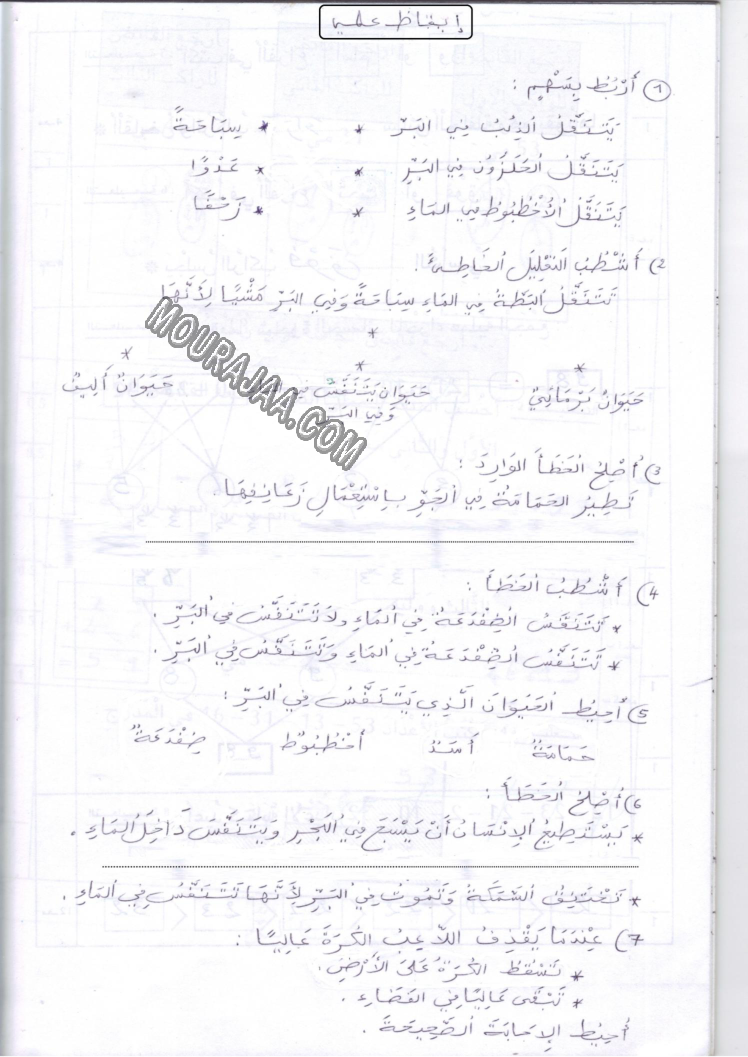 إيقاظ علمي
1) أَرْبُطُ بِسَهْمٍ :
يَتَنَقَّلُ الذِّئْبُ فِي البَرِّ * * سِبَاحَةً
يَتَنَقَّلُ الحَلَزُونُ فِي البَرِّ * * عَدْوًا
يَتَنَقَّلُ الأُخْطُبُوطُ فِي المَاءِ * * زَحْفًا
2) أَشْطُبُ التَّعْلِيلَ الخَاطِئَ :
تَتَنَقَّلُ البَطَّةُ فِي المَاءِ سِبَاحَةً وَفِي البَرِّ مَشْيًا لِأَنَّهَا
*
* * *
حَيَوَانٌ بَرْمَائِيٌّ حَيَوَانٌ يَتَنَفَّسُ فِي حَيَوَانٌ أَلِيفٌ
وَفِي البَرِّ
MOURAJAA.COM
3) أُصْلِحُ الخَطَأَ الوَارِدَ :
تَطِيرُ الحَمَامَةُ فِي الجَوِّ بِاسْتِعْمَالِ زَعَانِفِهَا.
4) أَشْطُبُ الخَطَأَ :
* تَتَنَفَّسُ الضِّفْدَعَةُ فِي المَاءِ ولاَ تَتَنَفَّسُ فِي البَرِّ.
* تَتَنَفَّسُ الضِّفْدَعَةُ فِي المَاءِ وَتَتَنَفَّسُ فِي البَرِّ.
5) أُحِيطُ الحَيَوَانَ الَّذِي يَتَنَفَّسُ فِي البَرِّ :
حَمَامَةٌ أَسَدٌ أُخْطُبُوطٌ ضِفْدَعَةٌ
6) أُصْلِحُ الخَطَأَ :
* يَسْتَطِيعُ الإِنْسَانُ أَنْ يَسْبَحَ فِي البَحْرِ وَيَتَنَفَّسَ دَاخِلَ المَاءِ.
* تَخْتَنِقُ السَّمَكَةُ وَتَمُوتُ فِي البَرِّ لِأَنَّهَا تَتَنَفَّسُ فِي المَاءِ.
7) عِنْدَمَا يَقْذِفُ اللاَّعِبُ الكُرَةَ عَالِيًا :
* تَسْقُطُ الكُرَةُ عَلَى الأَرْضِ.
* تَبْقَى عَالِيًا فِي الفَضَاءِ.
أُحِيطُ الإِجَابَةَ الصَّحِيحَةَ.